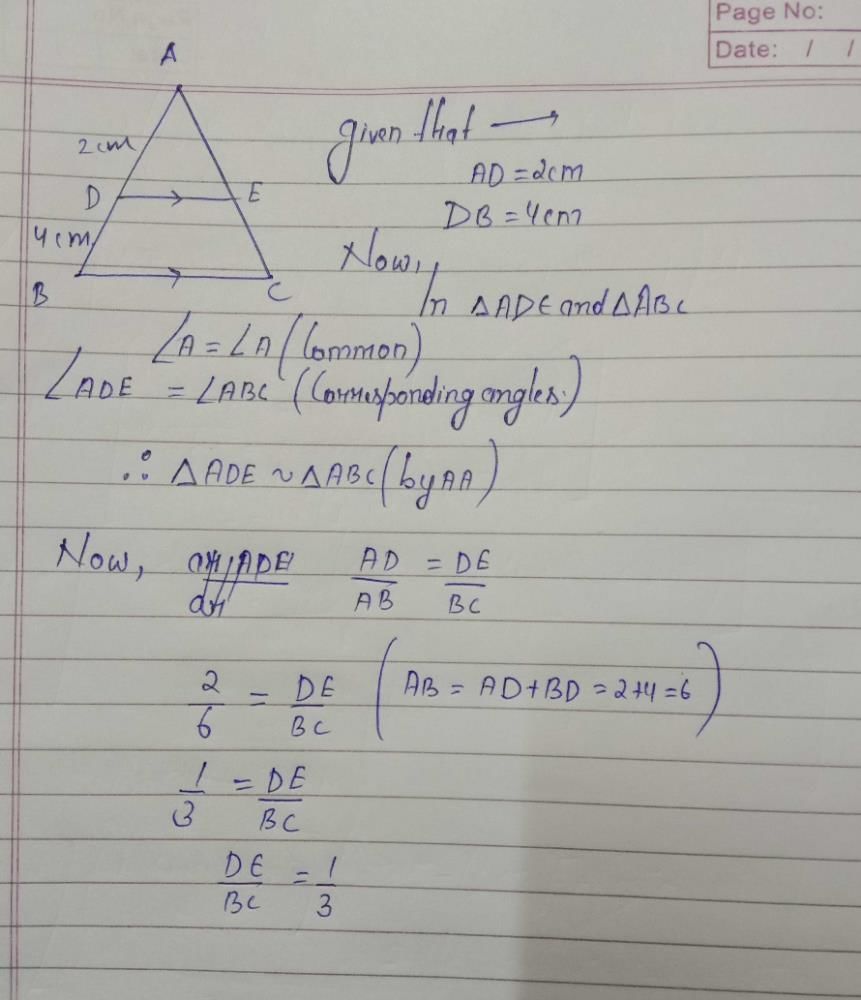 Page No:
Date: / /
A
2cm
D E
4cm
B C
given that →
AD = 2cm
DB = 4cm
Now,
In △ADE and △ABC
∠A = ∠A (Common)
∠ADE = ∠ABC (Corresponding angles.)
∴ △ADE ~ △ABC (by AA)
Now, AD/AB = DE/BC
2/6 = DE/BC (AB = AD+BD = 2+4 = 6)
1/3 = DE/BC
DE/BC = 1/3